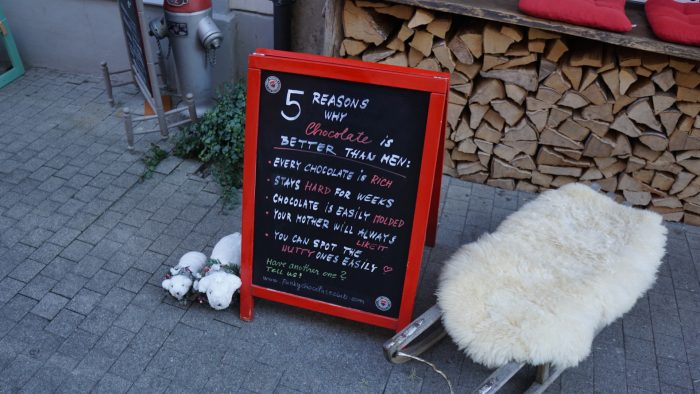 5 REASONS
WHY
Chocolate is
BETTER THAN MEN:
• EVERY CHOCOLATE IS RICH
• STAYS HARD FOR WEEKS
• CHOCOLATE IS EASILY MOLDED
• YOUR MOTHER WILL ALWAYS
LIKE IT
• YOU CAN SPOT THE
NUTTY ONES EASILY ♡
Have another one?
TELL US!
www.funkychocolateclub.com